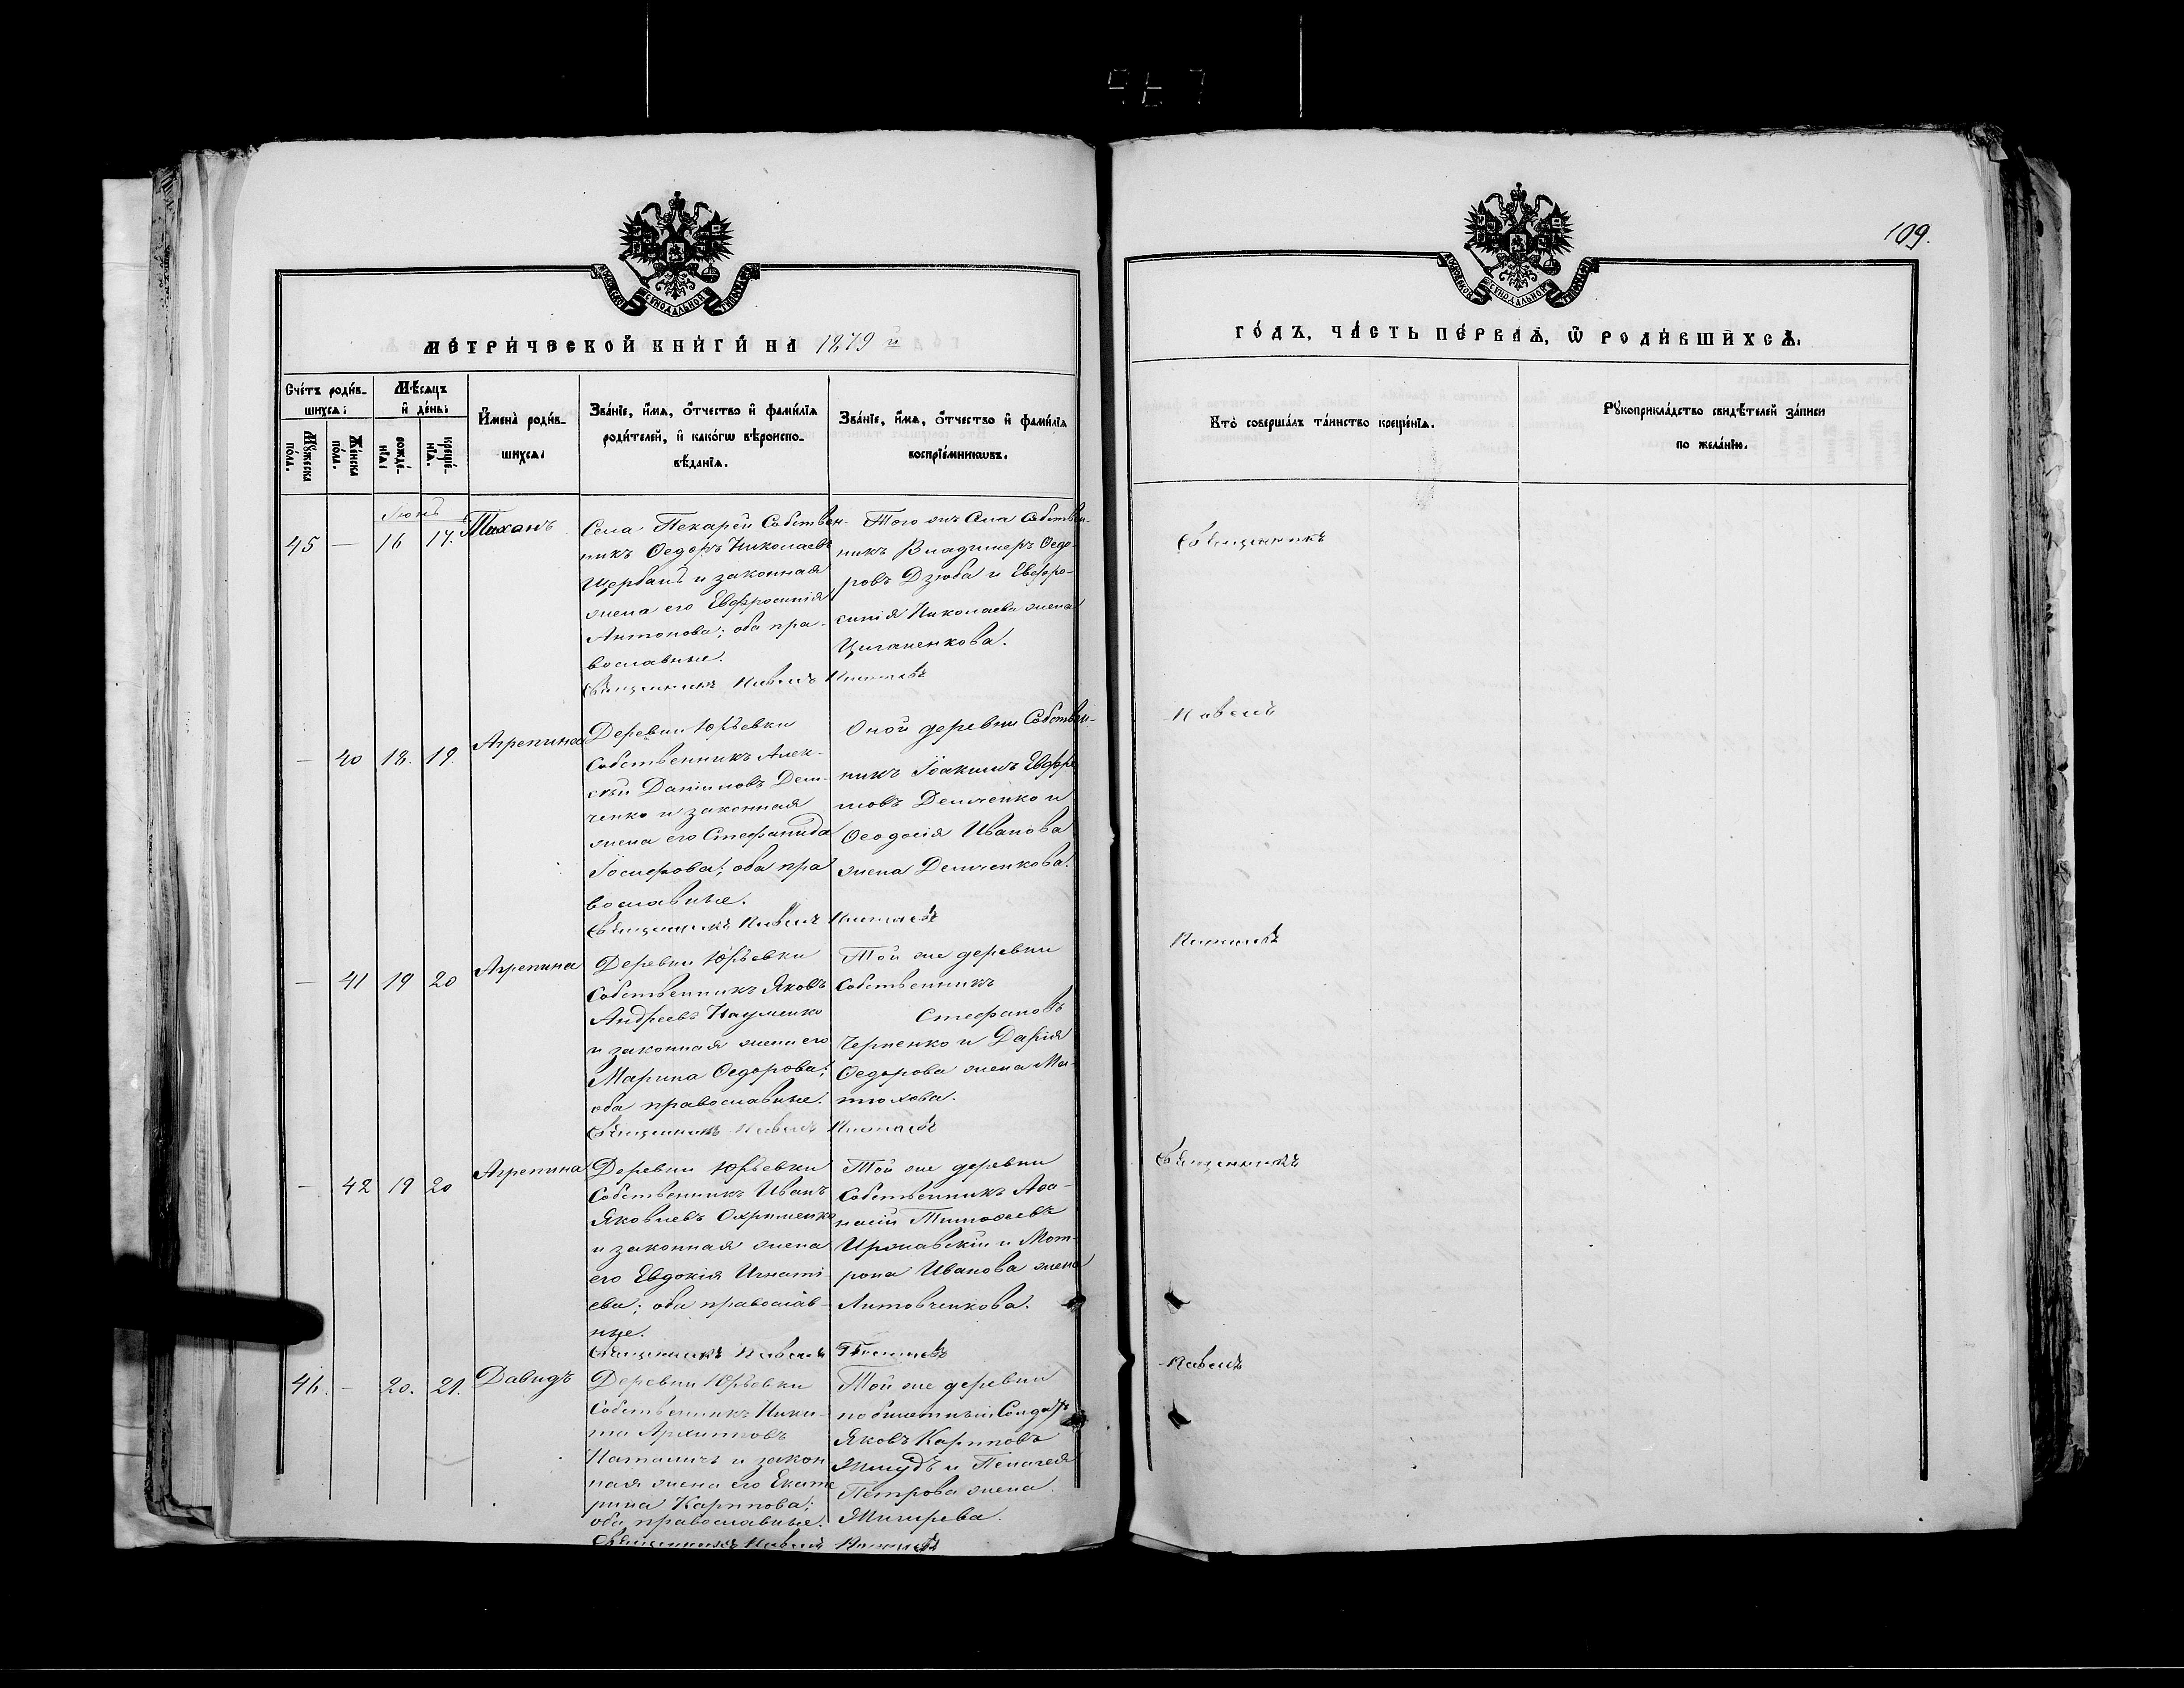 109.
МЕТРИЧЕСКОЙ КНИГИ НА 1879 й
ГОДЪ, ЧАСТЬ ПЕРВАЯ, Ѿ РОДИВШИХСЯ.
Счетъ родив-
шихся:
Мѣсяцъ
и день:
Мужеска
пола.
Женска
пола.
рожде-
нія:
креще-
нія.
Имена родив-
шихся:
Званіе, имя, отчество и фамилія
родителей, и какогѡ вѣроиспо-
вѣданія.
Званіе, имя, отчество и фамилія
воспріемникѡвъ.
Кто совершалъ таинство крещенія.
Рукоприкладство свидѣтелей записи
по желанію.
Іюнь
45 — 16 17. Тиханъ
Села Пекарей Собствен-
никъ Ѳедоръ Николаевъ
Щербань и законная
жена его Евфросинія
Антонова; оба пра-
вославные.
Того же Села Собствен-
никъ Владимеръ Ѳедо-
ровъ Дзюба и Евфро-
синія Николаева жена
Циганенкова.
Священникъ Павелъ
Священникъ
— 40 18. 19. Агрепина
Деревни Юрьевки
Собственникъ Алек-
сѣй Даніиловъ Дем-
ченко и законная
жена его Стефанида
Іосифова; оба пра
вославные.
Оной деревни Собствен-
никъ Іоакимъ Евфре
мовъ Демченко и
Ѳеодосія Иванова
жена Демченкова.
Священникъ Павелъ
Павелъ
— 41 19 20 Агрепина
Деревни Юрьевки
Собственникъ Яковъ
Андреевъ Науменко
и законная жена его
Марина Ѳедорова;
оба православные.
Той же деревни
Собственникъ
Стефановъ
Черненко и Дарія
Ѳедорова жена Ма-
тюхова.
Священникъ Павелъ
— 42 19 20 Агрепина
Деревни Юрьевки
Собственникъ Иванъ
Яковлевъ Охрименко
и законная жена
его Евдокія Игнаті-
ева; оба православ-
ные.
Той же деревни
Собственникъ Аѳа-
насій Тимоѳеевъ
Иржавскій и Мот-
рона Иванова жена
Литовченкова.
Священникъ Павелъ
Священникъ
46. — 20. 21. Давидъ
Деревни Юрьевки
Собственникъ Ники-
та Архиповъ
и закон
ная жена его Екате
рина Карпова;
оба православные.
Той же деревни
побилетный Солдатъ
Яковъ Карповъ
и Пелагея
Петрова жена
Священникъ Павелъ
Павелъ